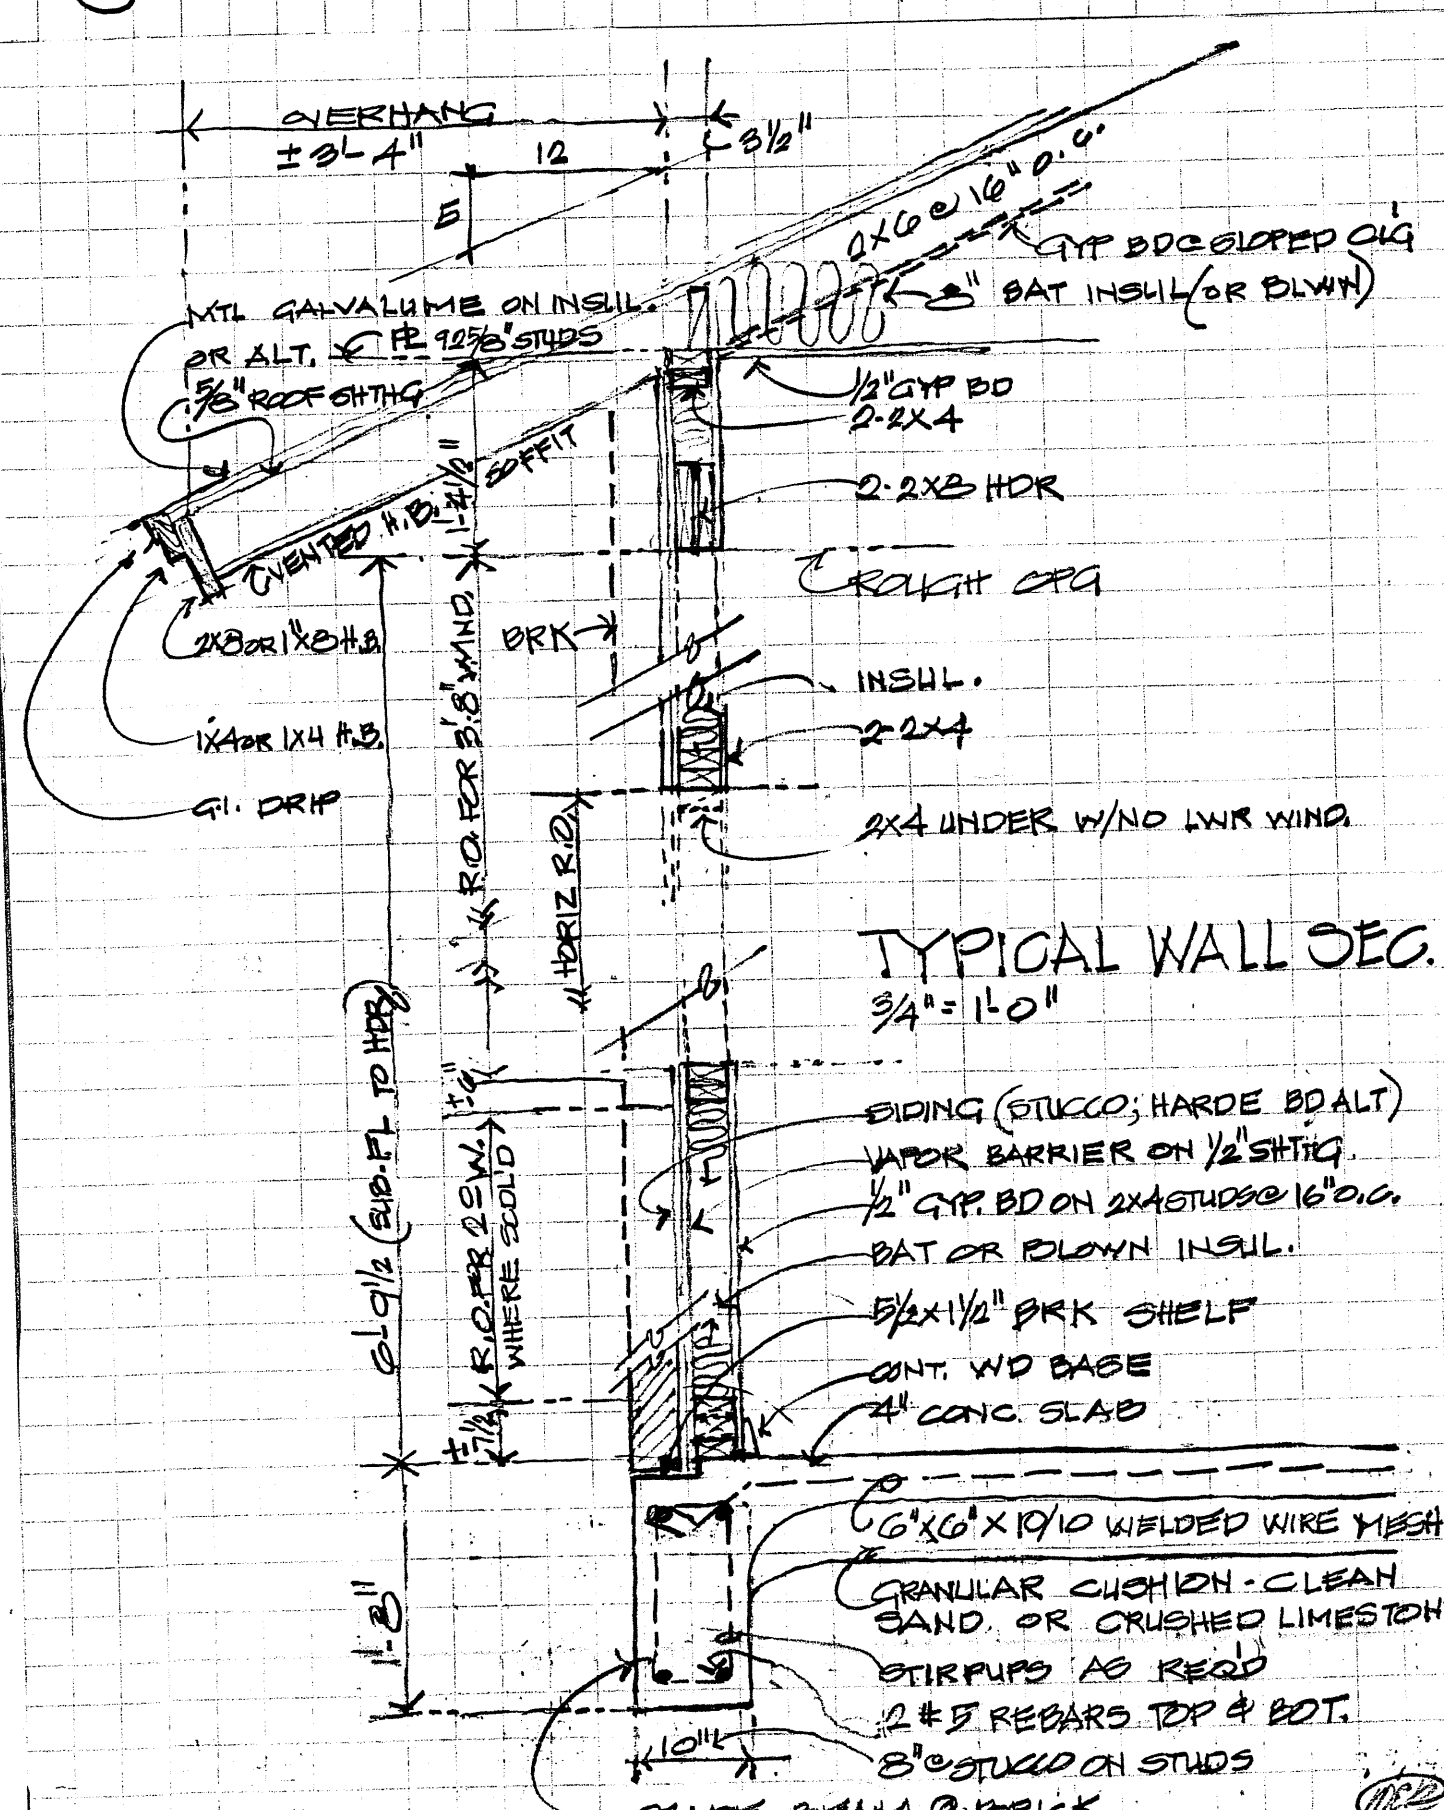 OVERHANG
± 3'-4"
12
3 1/2"
5
2X6 @ 16" O.C.
GYP BD @ SLOPED CL'G
8" BAT INSUL (OR BLWN)
MTL GALVALUME ON INSUL.
OR ALT.
PL 92 5/8" STUDS
5/8" ROOF SHTHG
1/2" GYP BD
2-2X4
SOFFIT
VENTED H.B.
1'-4 1/2"
2-2X8 HDR
ROUGH OPG
2X8 OR 1"X8 H.B.
BRK
INSUL.
2-2X4
1X4 OR 1X4 H.B.
G.I. DRIP
R.O. FOR 3'8" WIND.
HORIZ R.O.
2X4 UNDER W/NO LWR WIND.
TYPICAL WALL SEC.
3/4" = 1'-0"
6'-9 1/2 (SUB-FL TO HDR)
±6"
R.O. FOR 2° W.
WHERE SOLID
SIDING (STUCCO; HARDE BD ALT)
VAPOR BARRIER ON 1/2" SHTHG.
1/2" GYP. BD ON 2X4 STUDS @ 16" O.C.
BAT OR BLOWN INSUL.
5 1/2 X 1 1/2" BRK SHELF
CONT. WD BASE
4" CONC. SLAB
± 7 1/2"
6"X6" X 10/10 WELDED WIRE MESH
GRANULAR CUSHION - CLEAN
SAND. OR CRUSHED LIMESTON
1'-8"
STIRRUPS AS REQ'D
2 #5 REBARS TOP & BOT.
10"
8" @ STUCCO ON STUDS